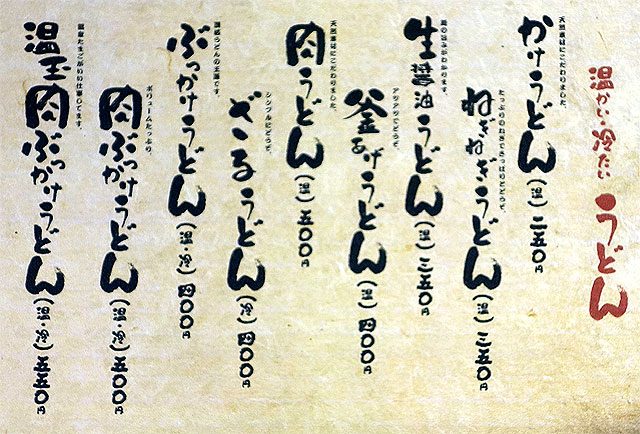 温かい・冷たい うどん
天然だしにこだわりました。
かけうどん(温)二五〇円
たっぷりのねぎでさっぱりとどうぞ。
ねぎねぎうどん(温)三五〇円
生醤油うどん(温)三五〇円
アツアツでどうぞ。
釜あげうどん(温)四〇〇円
天然だしにこだわりました。
肉うどん(温)五〇〇円
シンプルにどうぞ。
ざるうどん(冷)四〇〇円
讃岐うどんの王道です。
ぶっかけうどん(温・冷)四〇〇円
ボリュームたっぷり。
肉ぶっかけうどん(温・冷)五〇〇円
温泉たまごがいい仕事してます。
温玉肉ぶっかけうどん(温・冷)五五〇円